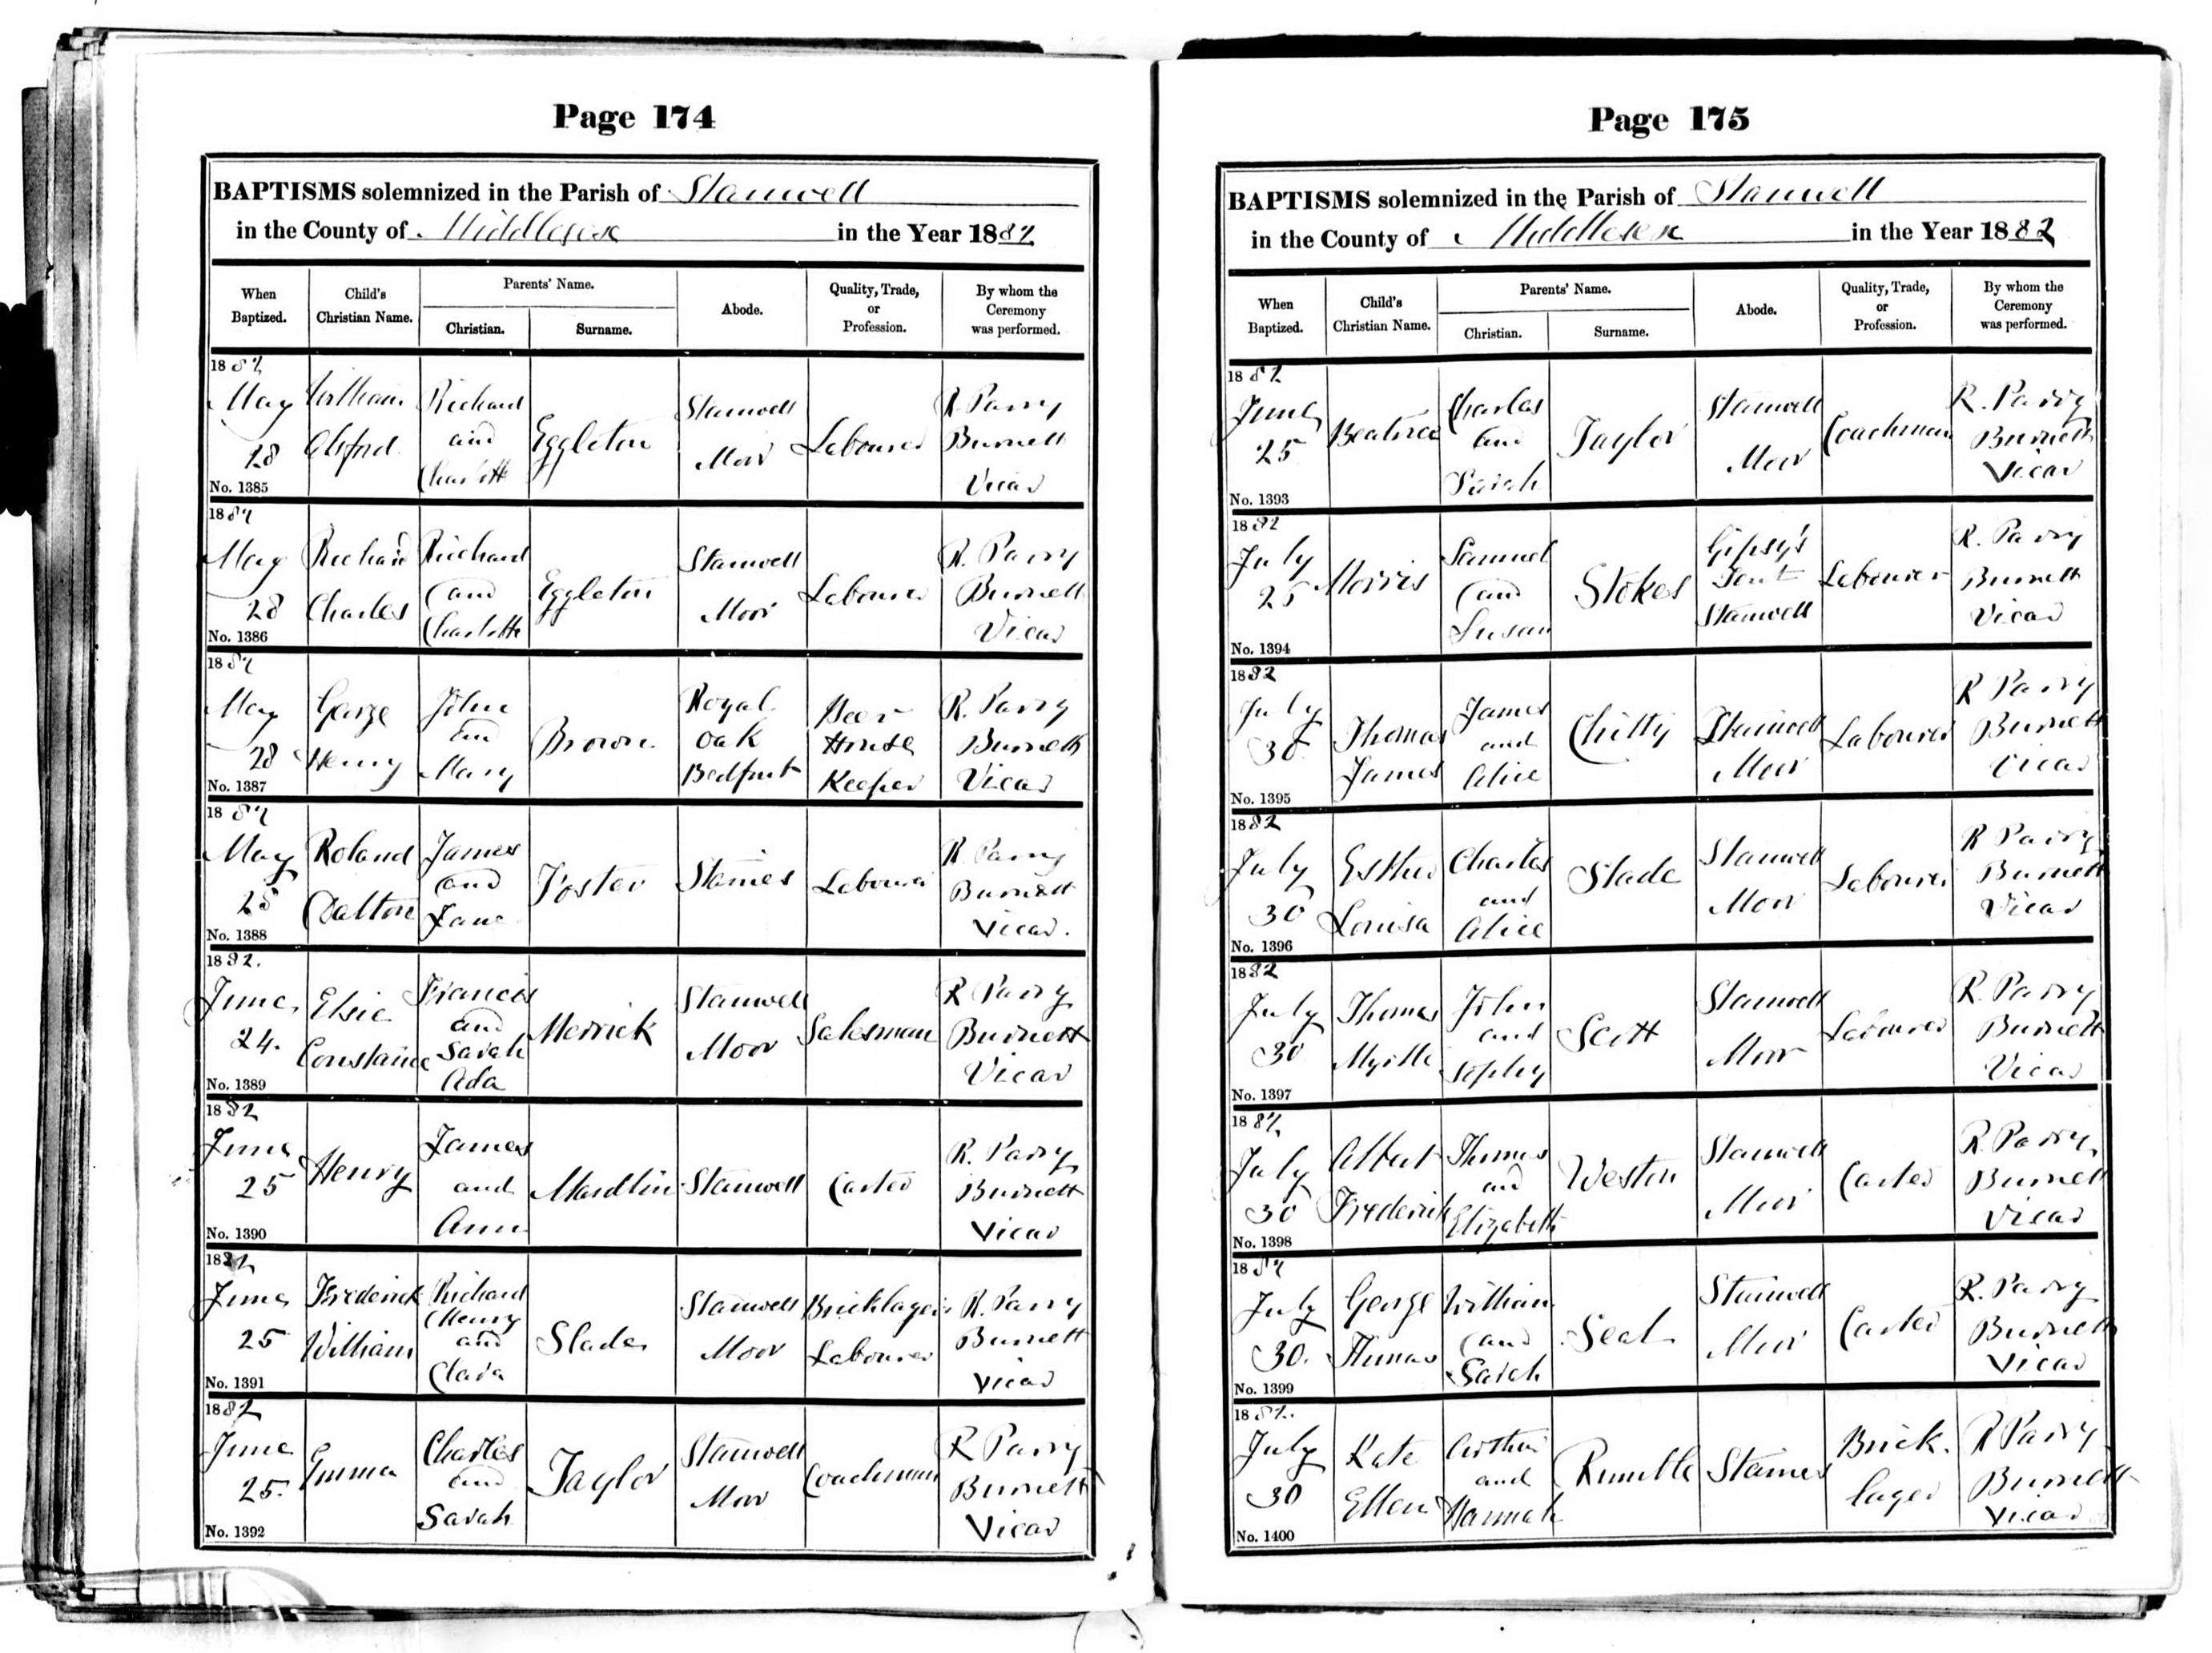 Page 174
BAPTISMS solemnized in the Parish of Stanwell
in the County of Middlesex in the Year 1882
When Baptized. Child's Christian Name. Parents' Name. Christian. Surname. Abode. Quality, Trade, or Profession. By whom the Ceremony was performed.
1882 May 28 William Alsford Richard and Charlotte Eggleton Stanwell Moor Labourer R. Parry Burnett Vicar
No. 1385
1882 May 28 Richard Charles Richard and Charlotte Eggleton Stanwell Moor Labourer R. Parry Burnett Vicar
No. 1386
1882 May 28 George Henry John and Mary Brown Royal Oak Bedfont Beer House Keeper R. Parry Burnett Vicar
No. 1387
1882 May 28 Roland Dalton James and Jane Foster Staines Labourer R Parry Burnett Vicar.
No. 1388
1882. June 24. Elsie Constance Francis and Sarah Ada Merrick Stanwell Moor Salesman R Parry Burnett Vicar
No. 1389
1882 June 25 Henry James and Ann Mardlin Stanwell Carter R. Parry Burnett Vicar
No. 1390
1882 June 25 Frederick William Richard Henry and Clara Slade Stanwell Moor Bricklayer's Labourer R. Parry Burnett Vicar
No. 1391
1882 June 25. Emma Charles and Sarah Taylor Stanwell Moor Coachman R Parry Burnett Vicar
No. 1392
Page 175
BAPTISMS solemnized in the Parish of Stanwell
in the County of Middlesex in the Year 1882
When Baptized. Child's Christian Name. Parents' Name. Christian. Surname. Abode. Quality, Trade, or Profession. By whom the Ceremony was performed.
1882 June 25 Beatrice Charles and Sarah Taylor Stanwell Moor Coachman R. Parry Burnett Vicar
No. 1393
1882 July 25 Morris Samuel and Susan Stokes Gipsy's Tent Stanwell Labourer R. Parry Burnett Vicar
No. 1394
1882 July 30 Thomas James James and Alice Chitty Stanwell Moor Labourer R Parry Burnett Vicar
No. 1395
1882 July 30 Esther Louisa Charles and Alice Slade Stanwell Moor Labourer R Parry Burnett Vicar
No. 1396
1882 July 30 Thomas John and Sophy Scott Stanwell Moor Labourer R. Parry Burnett Vicar
No. 1397
1882 July 30 Albert Frederick Thomas and Elizabeth Weston Stanwell Moor Carter R. Parry Burnett Vicar
No. 1398
1882 July 30. George Thomas William and Sarah Stanwell Moor Carter R. Parry Burnett Vicar
No. 1399
1882. July 30 Kate Ellen Arthur and Hannah Rumble Staines Brick. layer R Parry Burnett Vicar
No. 1400